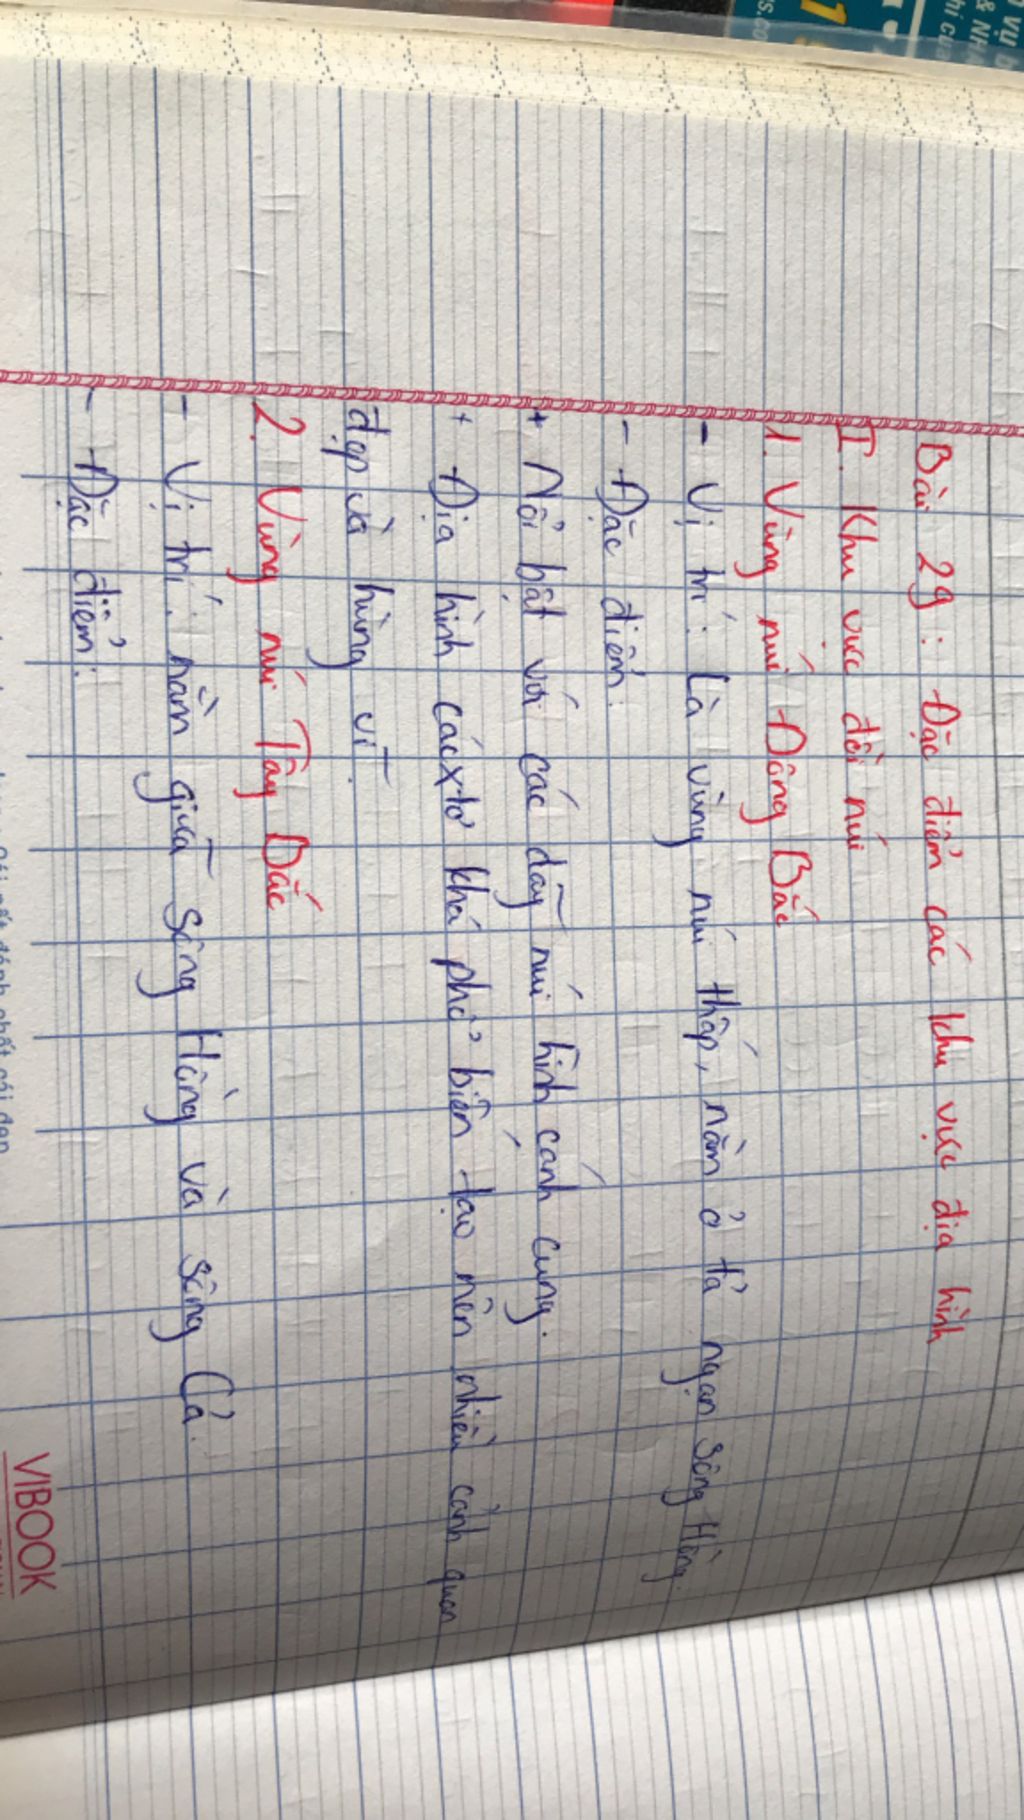 Bài 29: Đặc điểm các khu vực địa hình
I. Khu vực đồi núi
1. Vùng núi Đông Bắc
- Vị trí: Là vùng núi thấp, nằm ở tả ngạn sông Hồng.
- Đặc điểm:
+ Nổi bật với các dãy núi hình cánh cung.
+ Địa hình cácxtơ khá phổ biến tạo nên nhiều cảnh quan
đẹp và hùng vĩ.
2. Vùng núi Tây Bắc
- Vị trí: nằm giữa sông Hồng và sông Cả.
- Đặc điểm:
VIBOOK